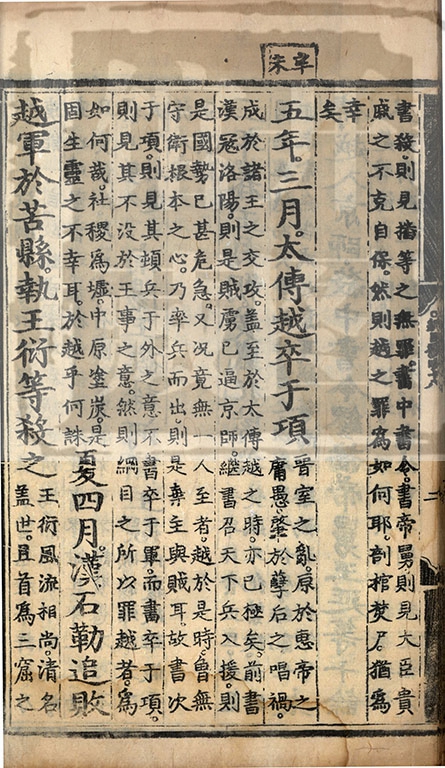 辛未
書殺。則見播等之無罪。書中書令。書帝舅則見大臣貴
戚之不克自保。然則越之罪爲如何耶。剖棺焚尸。猶爲
幸
矣
五年。三月。太傅越卒于項
晉室之亂。原於惠帝之
庸愚肇於孽后之唱禍。
成於諸王之交攻。盖至於太傅越之時。亦已極矣。前書
漢冦洛陽。則是賊虜已逼京師。繼書召天下兵入援。則
是國勢已甚危急。又况竟無一人至者。越於是時。曾無
守衛根本之心。乃率兵而出。則是棄主與賊耳。故書次
于項。則見其頓兵于外之意。不書卒于軍。而書卒于項。
則見其不没於王事之意。然則綱目之所以罪越者。爲
如何哉。社稷爲墟。中原塗炭。是
因生靈之不幸耳。於越乎何誅
夏四月。漢石勒追敗
越軍於苦縣。執王衍等殺之
王衍風流相尚清名
盖世。且首爲三窟之